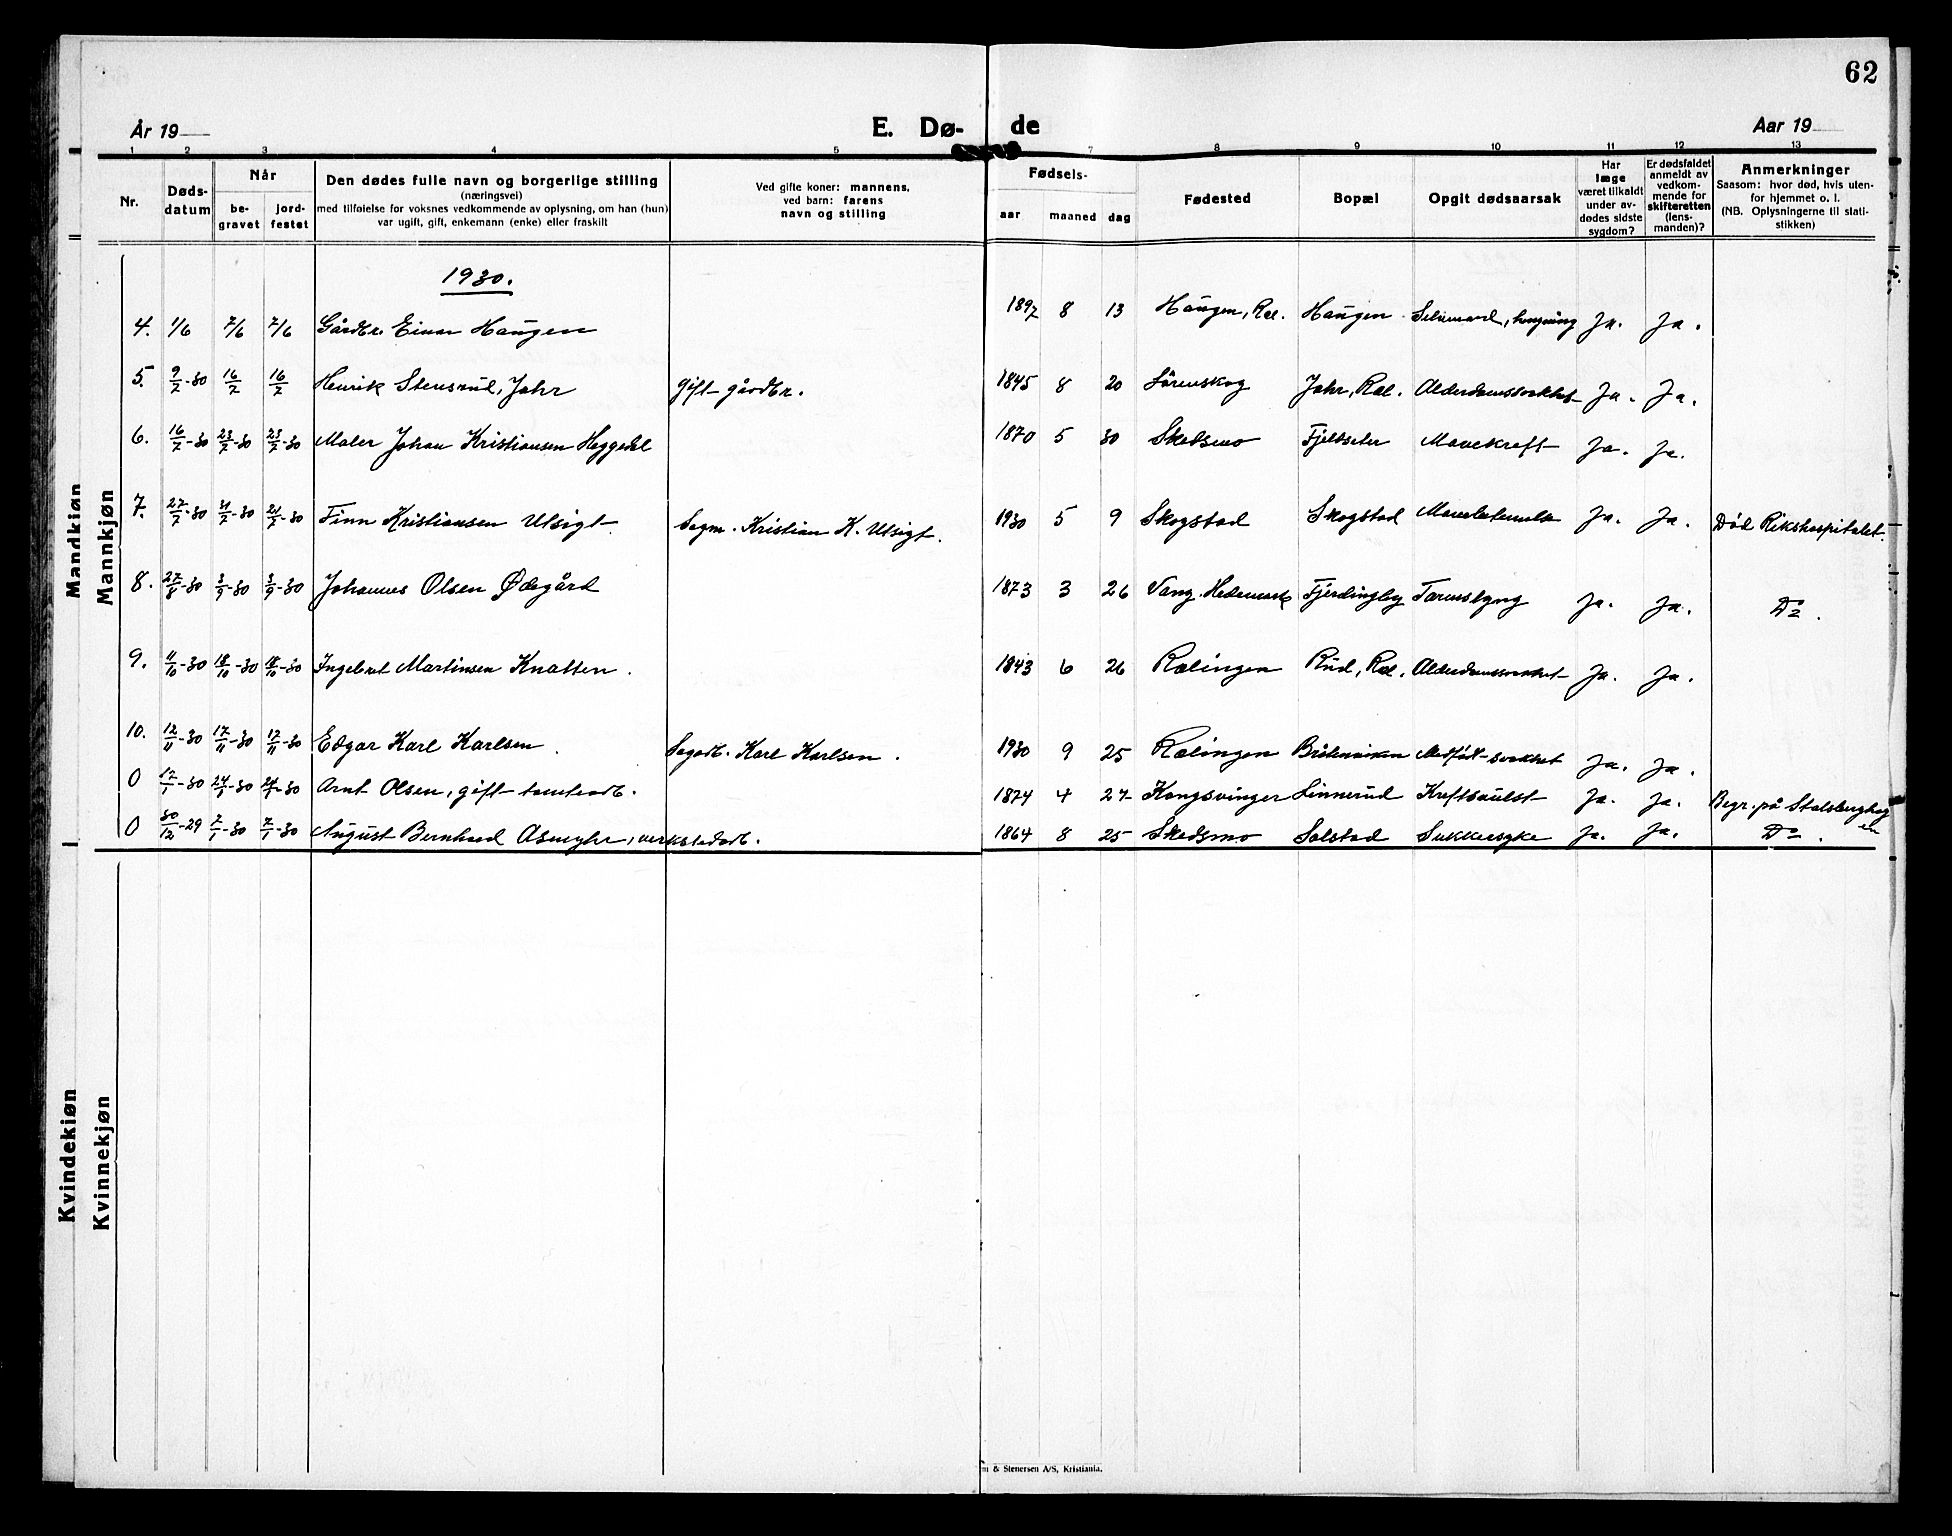 62
År 19
E. Dø-de
Aar 19
1 2 3 4 5 7 8 9 10 11 12 13
Nr.
Døds-datum
Når
be-gravet
jord-festet
Den dødes fulle navn og borgerlige stilling
(næringsvei)
med tilføielse for voksnes vedkommende av oplysning, om han (hun)
var ugift, gift, enkemann (enke) eller fraskilt
Ved gifte koner: mannens,
ved barn: farens
navn og stilling
Fødsels-
aar maaned dag
Fødested
Bopæl
Opgit dødsaarsak
Har
læge
været tilkaldt
under av-
dødes sidste
sygdom?
Er dødsfaldet
anmeldt av
vedkom-
mende for
skifteretten
(lens-
manden)?
Anmerkninger
Saasom: hvor død, hvis uten-
for hjemmet o. l.
(NB. Oplysningerne til stati-
stikken)
Mandkiøn
Mannkjøn
1930.
4. 1/6 7/6 7/6 Gårdbr. Einar Haugen 1897 8 13 Haugen, Ræl. Haugen Selvmord, hengning Ja. Ja.
5. 9/7-30 16/7 16/7 Henrik Stensrud, Jahr gift gårdbr. 1845 8 20 Lörenskog Jahr, Ræl. Alderdomssvakhet Ja. Ja.
6. 16/7-30 23/7-30 23/7-30 Maler Johan Kristiansen Heggedal 1870 5 30 Skedsmo Fjeldseter Mavekreft Ja. Ja.
7. 27/7-30 31/7-30 31/7-30 Finn Kristiansen Utsigt Sagm. Kristian K. Utsigt. 1930 5 9 Skogstad Skogstad Ja. Ja. Död Rikshospitalet.
8. 27/8-30 3/9-30 3/9-30 Johannes Olsen Ødegård 1873 3 26 Vang, Hedemark Fjerdingby Tarmslyng Ja. Ja. Do.
9. 11/10-30 18/10-30 18/10-30 Ingebret Martinsen Knatten. 1843 6 26 Rælingen Rud, Ræl. Alderdomssvakhet Ja. Ja.
10. 12/11-30 17/11-30 17/11-30 Edgar Karl Karlsen. Sagarb. Karl Karlsen. 1930 9 25 Rælingen Bråteveien Medfödt svakhet Ja. Ja.
0 17/1-30 24/1-30 24/1-30 Arnt Olsen, gift tomtearb. 1874 4 27 Kongsvinger Linnerud Kreftsvulst Ja. Ja. Begr. på Stalsberghagen
0 30/12-29 7/1-30 7/1-30 August Bernhard Asmyhr, verkstedarb. 1864 8 25 Skedsmo Solstad Sukkersyke Ja. Ja. Do.
Kvindekiøn
Kvinnekjøn
m & Stenersen A/S, Kristiania.